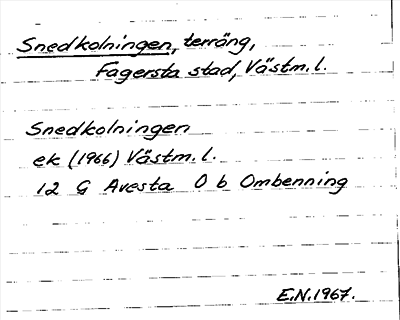 Snedkolningen, terräng,
Fagersta stad, Västm. l.
Snedkolningen
ek (1966) Västm. l.
12 G Avesta 0 b Ombenning
E.N. 1967.